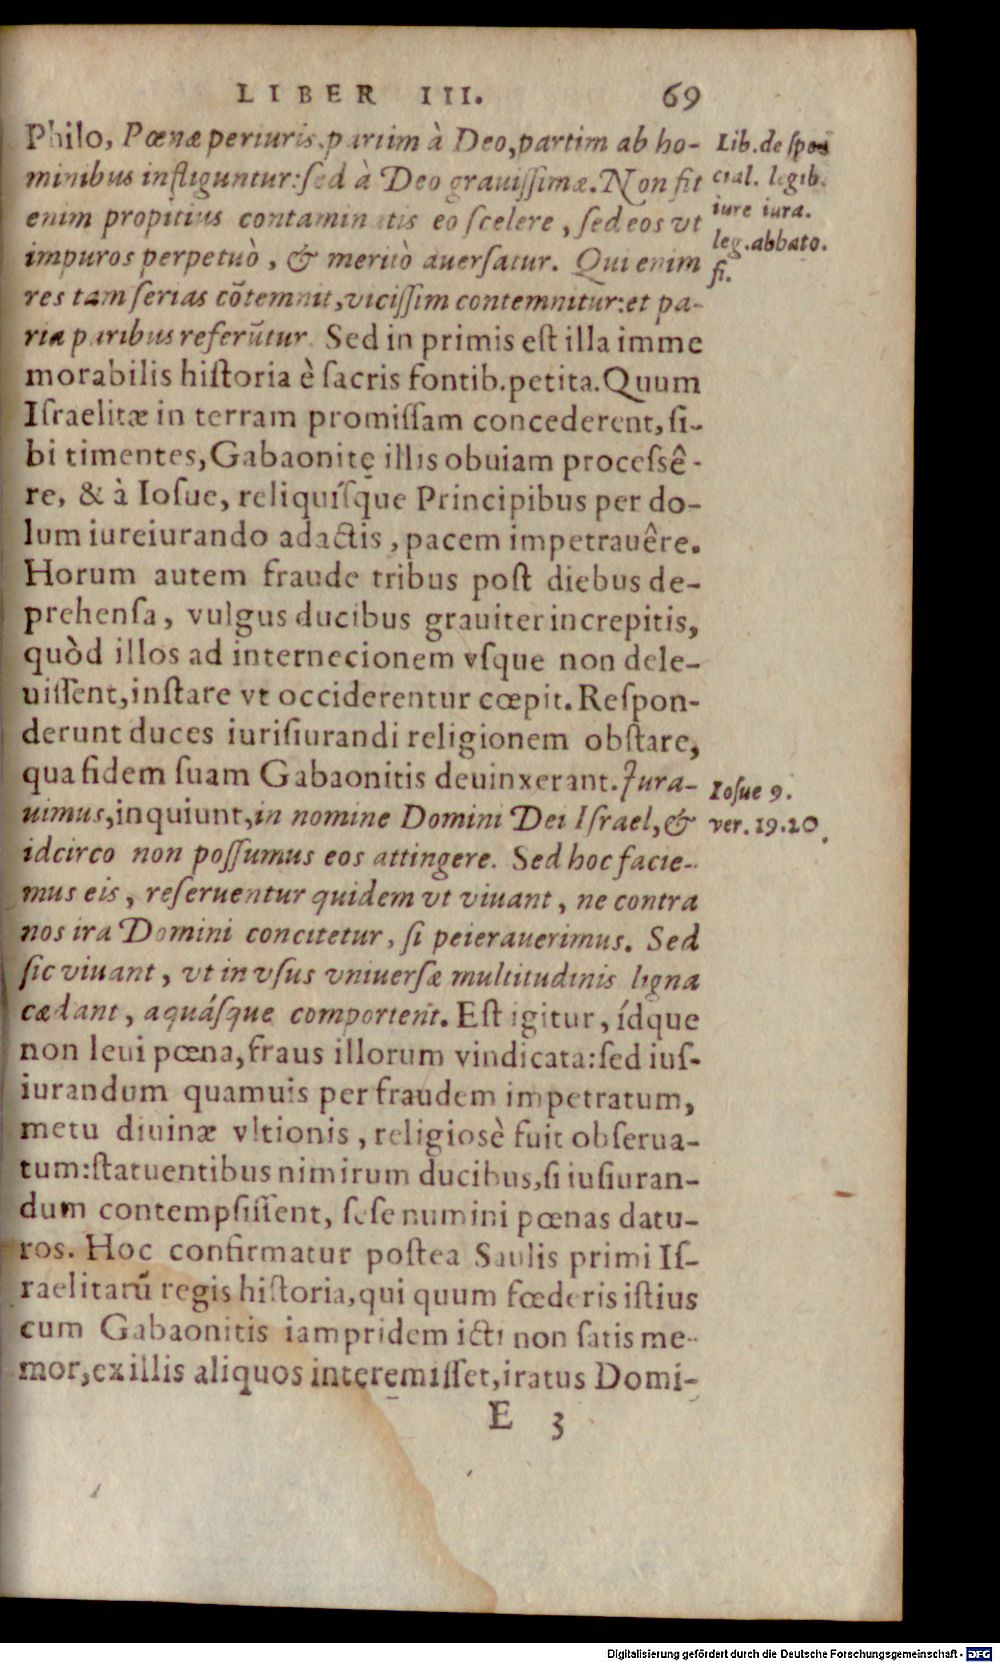 LIBER III. 69
Philo, Pœnæ periuris, partim à Deo, partim ab ho-
minibus infliguntur: sed à Deo grauissimæ. Non fit
enim propitius contaminatis eo scelere, sed eos vt
impuros perpetuò, & meritò auersatur. Qui enim
res tam serias cõtemnit, vicissim contemnitur: et pa-
ria paribus referũtur. Sed in primis est illa imme
morabilis historia è sacris fontib. petita. Quum
Israelitæ in terram promissam concederent, si-
bi timentes, Gabaonitę illis obuiam processê-
re, & à Iosue, reliquísque Principibus per do-
lum iureiurando adactis, pacem impetrauêre.
Horum autem fraude tribus post diebus de-
prehensa, vulgus ducibus grauiter increpitis,
quòd illos ad internecionem vsque non dele-
uissent, instare vt occiderentur cœpit. Respon-
derunt duces iurisiurandi religionem obstare,
qua fidem suam Gabaonitis deuinxerant. Iura-
uimus, inquiunt, in nomine Domini Dei Israel, &
idcirco non possumus eos attingere. Sed hoc facie-
mus eis, reseruentur quidem vt viuant, ne contra
nos ira Domini concitetur, si peierauerimus. Sed
sic viuant, vt in vsus vniuersæ multitudinis ligna
cædant, aquásque comportent. Est igitur, ídque
non leui pœna, fraus illorum vindicata: sed ius-
iurandum quamuis per fraudem impetratum,
metu diuinæ vltionis, religiosè fuit obserua-
tum: statuentibus nimirum ducibus, si iusiuran-
dum contempsissent, sese numini pœnas datu-
ros. Hoc confirmatur postea Saulis primi Is-
raelitarũ regis historia, qui quum fœderis istius
cum Gabaonitis iampridem icti non satis me-
mor, ex illis aliquos interemisset, iratus Domi-
E 3
Lib. de spe
cial. legib.
iure iura.
leg. abbato.
fi.
Iosue 9.
ver. 19.20.
Digitalisierung gefördert durch die Deutsche Forschungsgemeinschaft - DFG